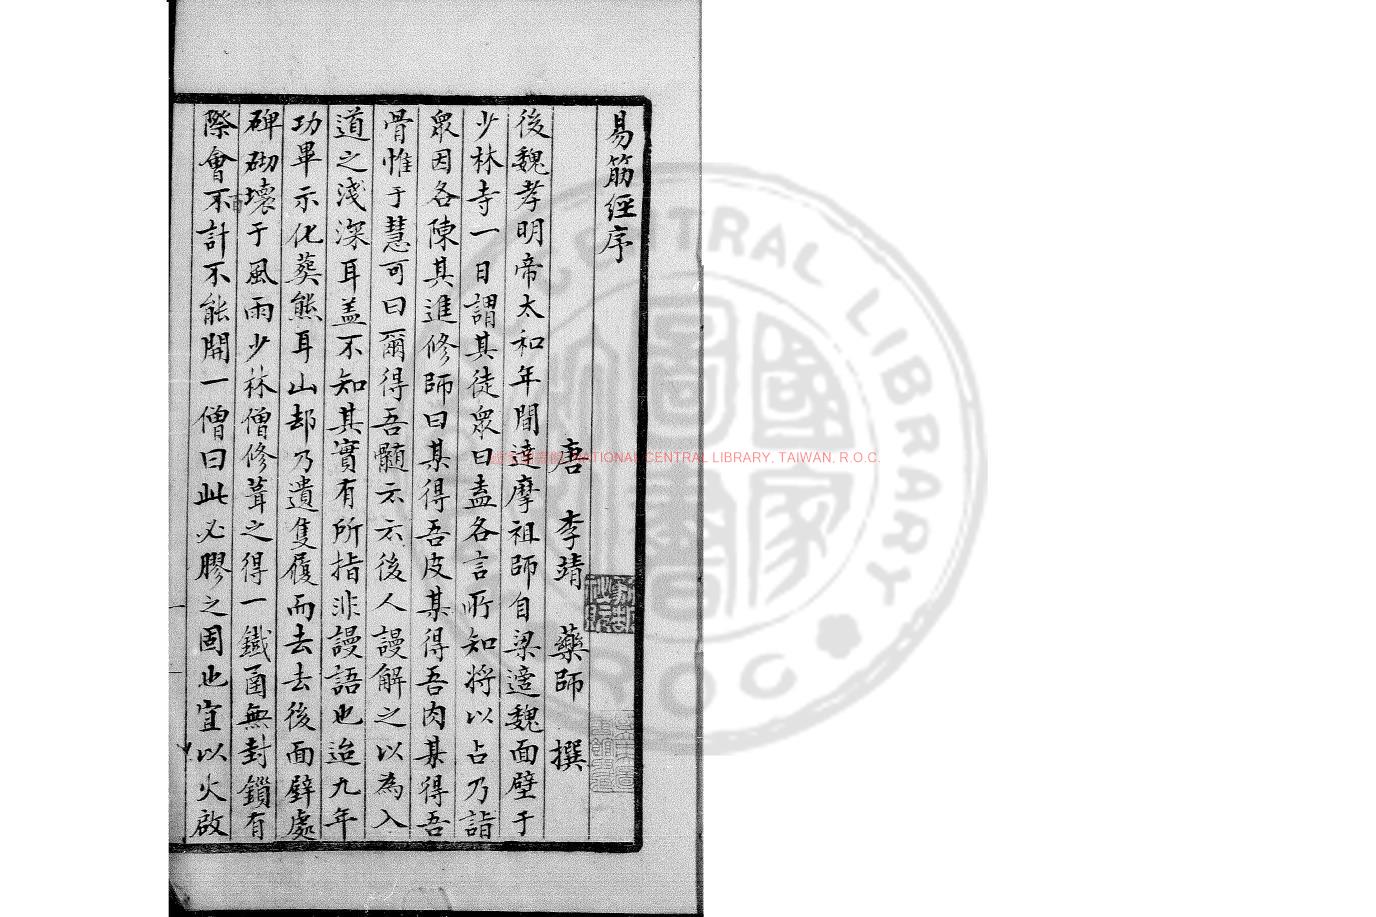 易筋經序
唐 李靖 藥師 撰
後魏孝明帝太和年間達摩祖師自梁適魏面壁于
少林寺一日謂其徒眾曰盍各言所知將以占乃詣
眾因各陳其進修師曰某得吾皮某得吾肉某得吾
骨惟于慧可曰爾得吾髓云云後人謾解之以為入
道之淺深耳盖不知其實有所指非謾語也迨九年
功畢示化葬熊耳山却乃遺隻履而去去後面壁處
碑砌壞于風雨少林僧修葺之得一鐵函無封鎖有
際會不計不能開一僧曰此必膠之固也宜以火啟
百
NATIONAL CENTRAL LIBRARY, TAIWAN, R.O.C.
CENTRAL LIBRARY
ROC
國家圖書